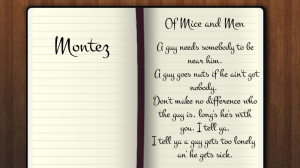 Montez
Of Mice and Men
A guy needs somebody to be
near him.
A guy goes nuts if he ain't got
nobody.
Don't make no difference who
the guy is, long's he's with
you. I tell ya.
I tell ya a guy gets too lonely
an' he gets sick.